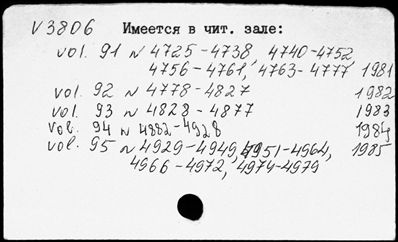 V3806 Имеется в чит. зале:
vol. 91 N 4725-4738, 4740-4752,
4756-4761, 4763-4777, 1981
vol. 92 N 4778-4827 1982
vol. 93 N 4828-4877 1983
vol. 94 N 4882-4928 1984
vol. 95 N 4929-4949, 4951-4964, 1985
4966-4972, 4974-4979